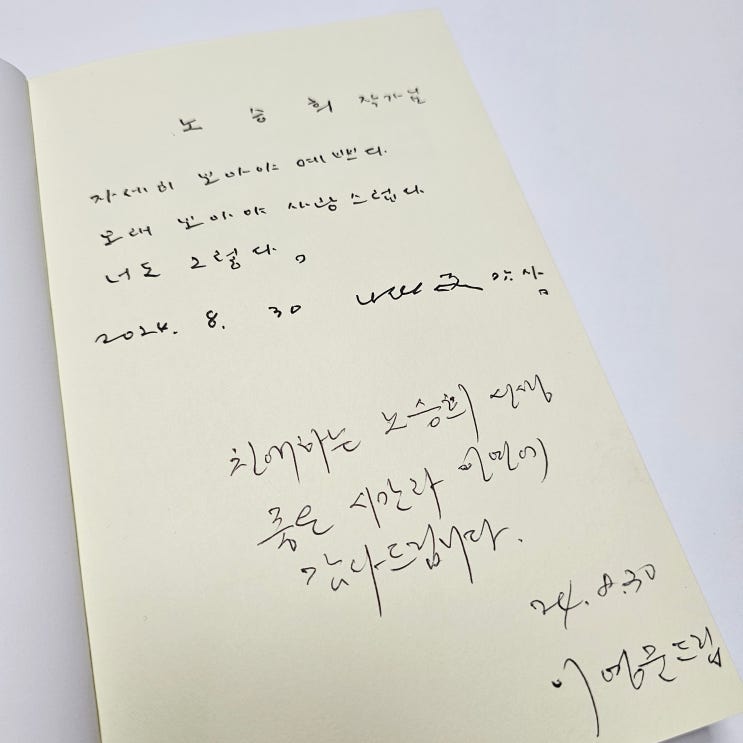 노승희 작가님
자세히 보아야 예쁘다.
오래 보아야 사랑스럽다.
너도 그렇다.
2024. 8. 30 나태주
친애하는 노승희 시인
좋은 시간과 인연에
감사드립니다.
24. 8. 30
이영문드림